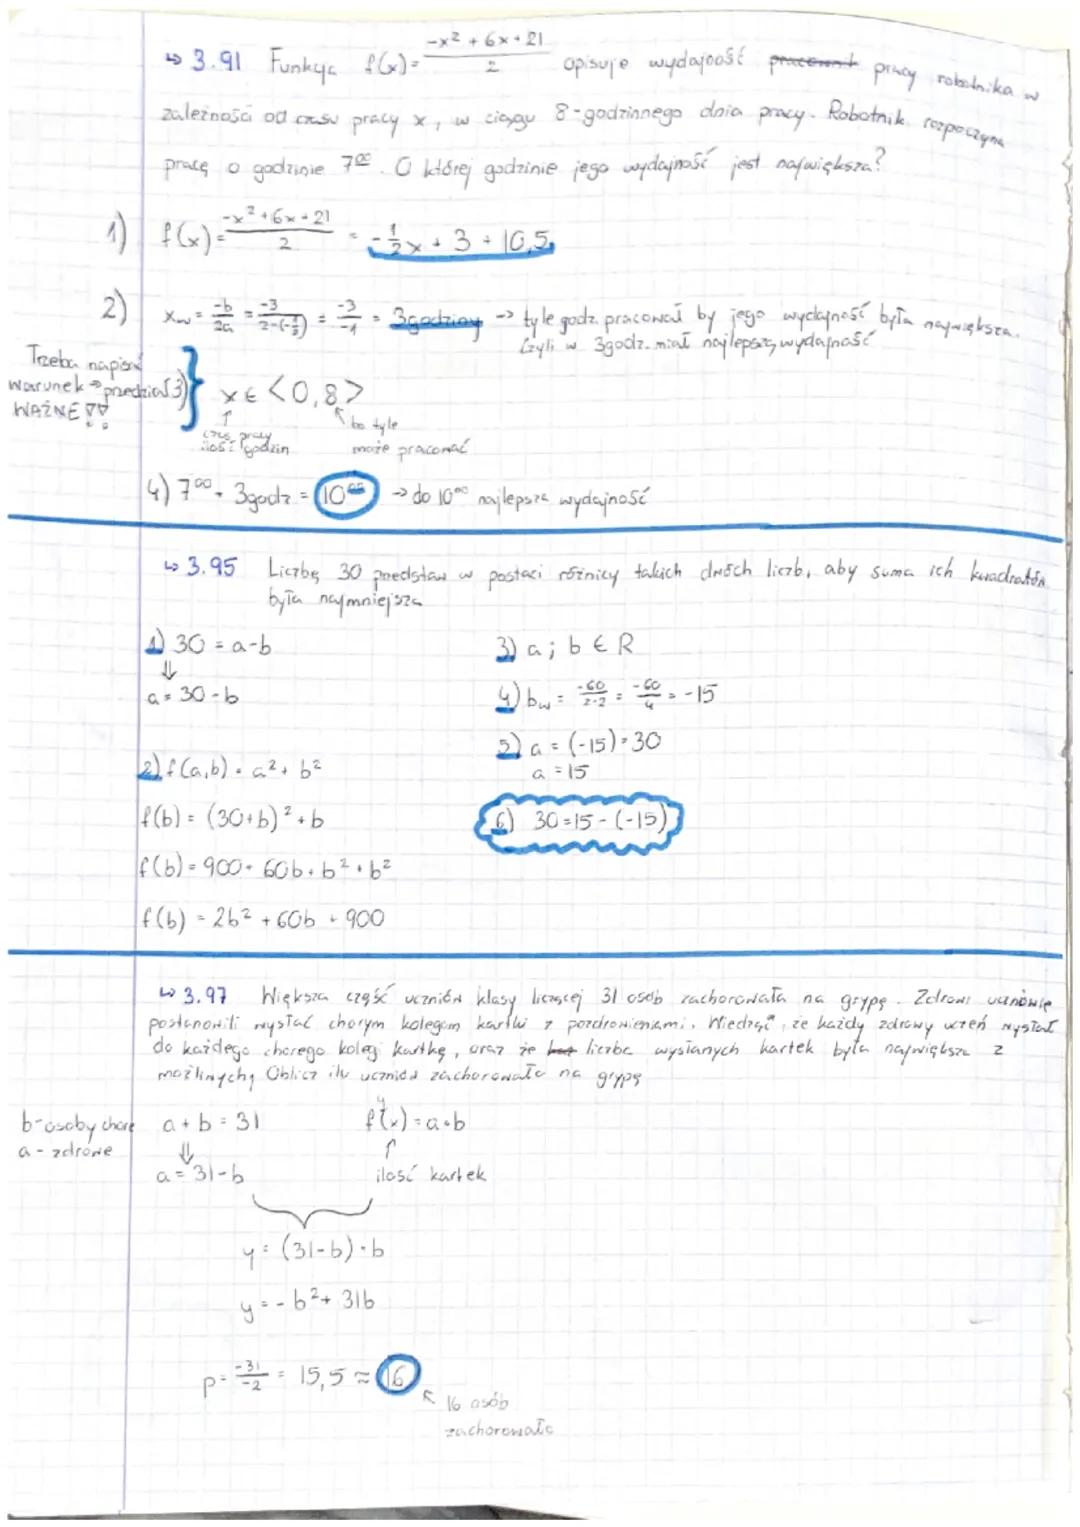 ↳ 3.91 Funkcja f(x)= -x² + 6x + 21 / 2 opisuje wydajność pracownik pracy robotnika w
zależności od czasu pracy x, w ciągu 8-godzinnego dnia pracy. Robotnik rozpoczyna
pracę o godzinie 7⁰⁰. O której godzinie jego wydajność jest największa?
1) f(x)= -x²+6x+21 / 2 = -1/2x + 3 + 10,5
2) xw = -b/2a = -3/2·(-1/2) = -3/-1 = 3godziny → tyle godz. pracował by jego wydajność była największa.
Czyli w 3godz. miał najlepszą wydajność
Trzeba napisać
warunek → przedział 3)
WAŻNE !!
x ∈ <0,8>
↑ czas pracy
ilość godzin
↖ bo tyle
może pracować
4) 7⁰⁰ + 3godz. = 10⁰⁰ → do 10⁰⁰ najlepsza wydajność
↳ 3.95 Liczbę 30 przedstaw w postaci różnicy takich dwóch liczb, aby suma ich kwadratów
była najmniejsza
1) 30 = a-b
⇓
a = 30-b
2) f(a,b) = a² + b²
f(b) = (30+b)² + b
f(b) = 900+ 60b + b² + b²
f(b) = 2b² + 60b + 900
3) a ; b ∈ R
4) bw = -60/2·2 = -60/4 = -15
5) a = (-15)+30
a = 15
6) 30=15-(-15)
↳ 3.97 Większa część uczniów klasy liczącej 31 osób zachorowała na grypę. Zdrowi uczniowie
postanowili wysłać chorym kolegom kartki z pozdrowieniami. Wiedząc, że każdy zdrowy uczeń wysłał
do każdego chorego kolegi kartkę, oraz że liczba wysłanych kartek była największa z
możliwych, Oblicz ilu uczniów zachorowało na grypę
b-osoby chore
a - zdrowe
a + b = 31
⇓
a = 31-b
y
f(x) = a·b
↑
ilość kartek
y = (31-b)·b
y = -b² + 31b
p = -31/-2 = 15,5 ≈ 16
↖ 16 osób
zachorowało